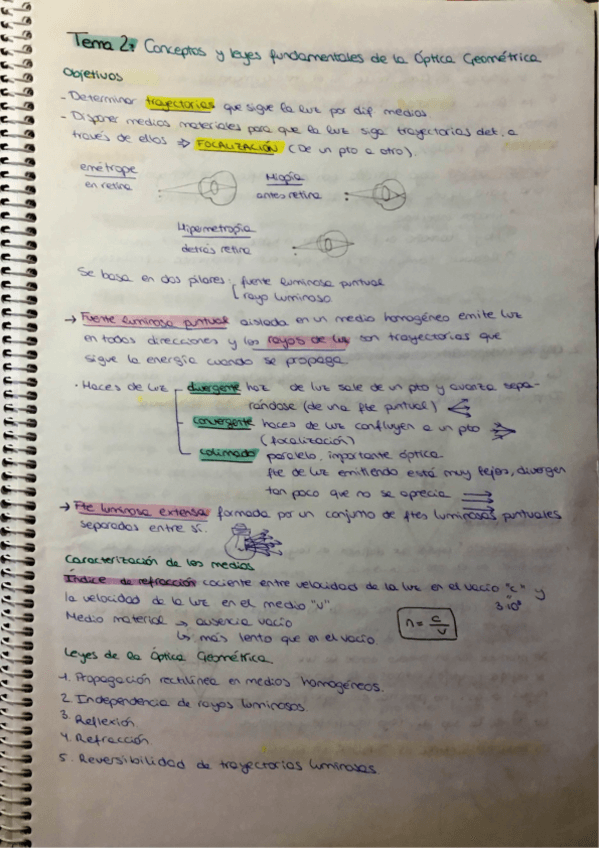 Tema 2: Conceptos y leyes fundamentales de la Óptica Geométrica
Objetivos
- Determinar trayectorias que sigue la luz por dif. medios
- Disponer medios materiales para que la luz siga trayectorias det. a
través de ellos ⇒ FOCALIZACIÓN (De un pto a otro).
emétrope
en retina
Miopía
antes retina
Hipermetropía
detrás retina
Se basa en dos pilares: fuente luminosa puntual
rayo luminoso
→ Fuente luminosa puntual aislada en un medio homogéneo emite luz
en todas direcciones y los rayos de luz son trayectorias que
sigue la energía cuando se propaga.
· Haces de luz divergente haz de luz sale de un pto y avanza sepa-
rándose (de una fte puntual)
convergente haces de luz confluyen a un pto
(focalización)
colimado paralelo, importante óptica.
fte de luz emitiendo está muy lejos, divergen
tan poco que no se aprecia
→ Fte luminosa extensa formada por un conjunto de ftes luminosas puntuales
separados entre sí.
Caracterización de los medios
Índice de refracción cociente entre velocidad de la luz en el vacío "c" y
la velocidad de la luz en el medio "v".
3·10⁸
Medio material → ausencia vacío
↳ más lento que en el vacío.
n = c/v
Leyes de la Óptica Geométrica.
1. Propagación rectilínea en medios homogéneos.
2. Independencia de rayos luminosos.
3. Reflexión
4. Refracción
5. Reversibilidad de trayectorias luminosas.